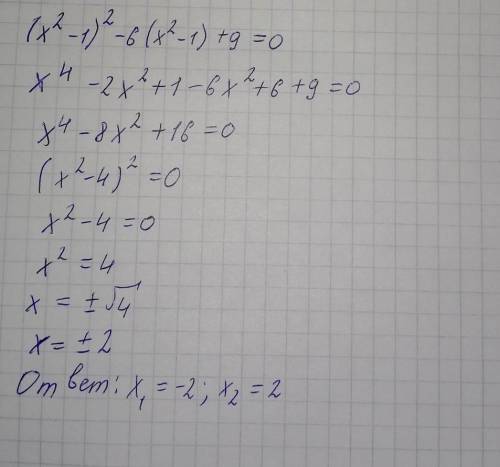 (x²-1)²-6(x²-1)+9=0
x⁴-2x²+1-6x²+6+9=0
x⁴-8x²+16=0
(x²-4)²=0
x²-4=0
x²=4
x=±√4
x=±2
Ответ: x₁=-2; x₂=2